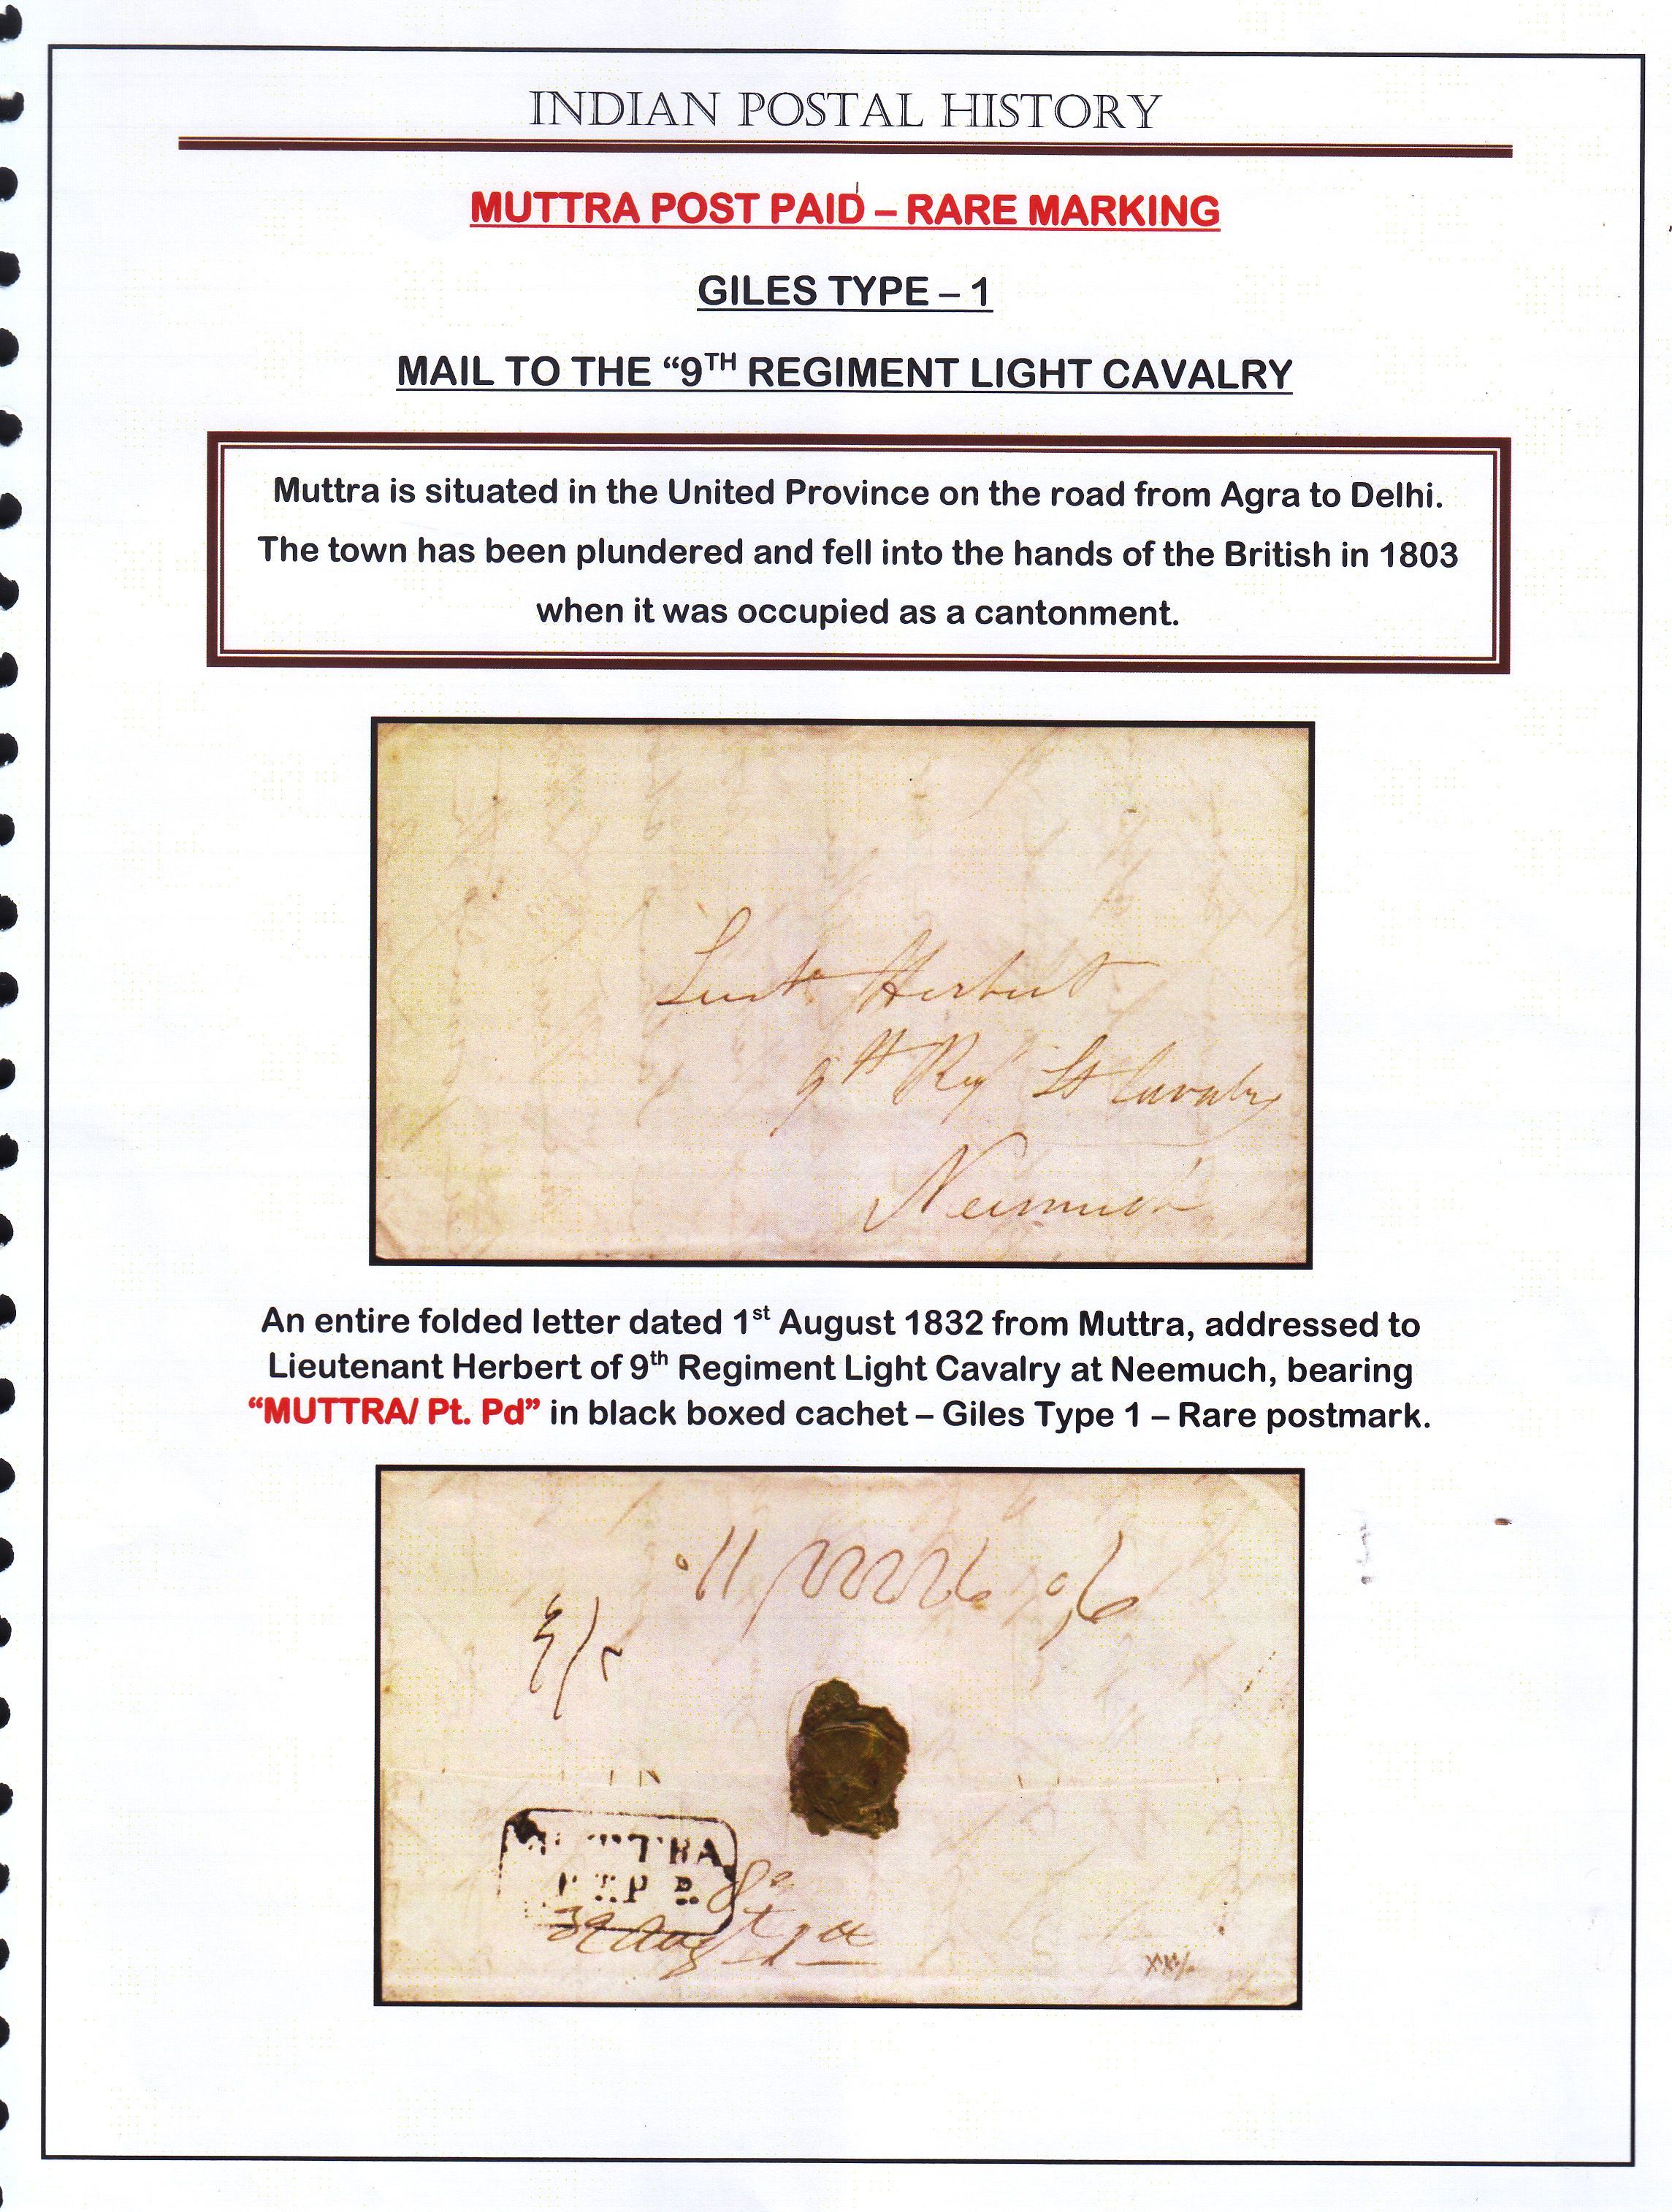 INDIAN POSTAL HISTORY
MUTTRA POST PAID – RARE MARKING
GILES TYPE – 1
MAIL TO THE “9TH REGIMENT LIGHT CAVALRY
Muttra is situated in the United Province on the road from Agra to Delhi.
The town has been plundered and fell into the hands of the British in 1803
when it was occupied as a cantonment.
Lieut Herbert
9th Regt Lt Cavalry
Neemuch
An entire folded letter dated 1st August 1832 from Muttra, addressed to
Lieutenant Herbert of 9th Regiment Light Cavalry at Neemuch, bearing
“MUTTRA/ Pt. Pd” in black boxed cachet – Giles Type 1 – Rare postmark.